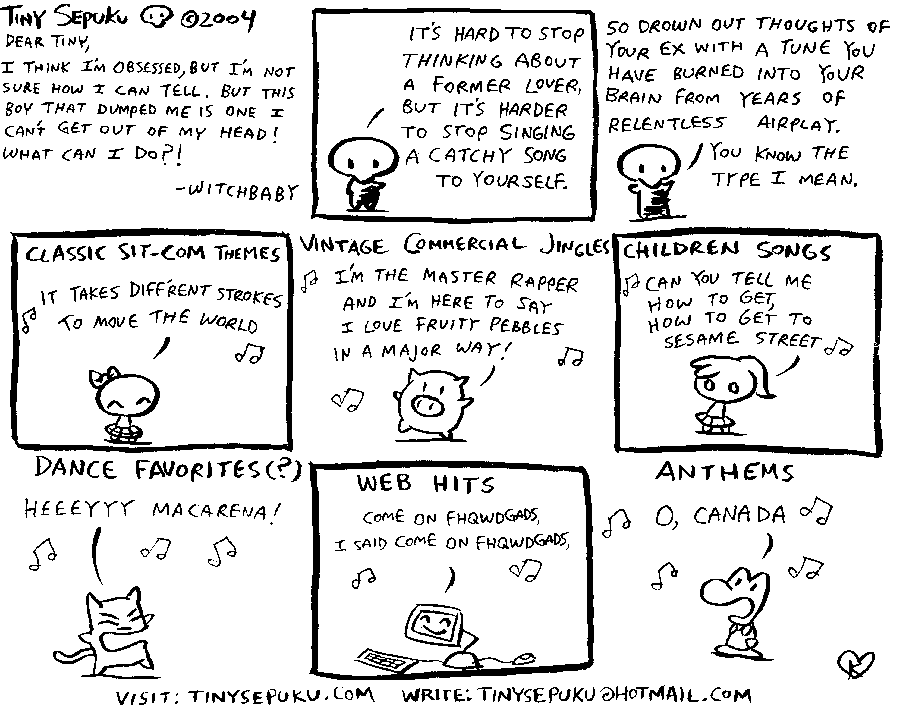 TINY SEPUKU ©2004
DEAR TINY,
I THINK I'M OBSESSED, BUT I'M NOT
SURE HOW I CAN TELL. BUT THIS
BOY THAT DUMPED ME IS ONE I
CAN'T GET OUT OF MY HEAD!
WHAT CAN I DO?!
-WITCHBABY
IT'S HARD TO STOP
THINKING ABOUT
A FORMER LOVER,
BUT IT'S HARDER
TO STOP SINGING
A CATCHY SONG
TO YOURSELF.
SO DROWN OUT THOUGHTS OF
YOUR EX WITH A TUNE YOU
HAVE BURNED INTO YOUR
BRAIN FROM YEARS OF
RELENTLESS AIRPLAY.
YOU KNOW THE
TYPE I MEAN.
CLASSIC SIT-COM THEMES
IT TAKES DIFFERENT STROKES
TO MOVE THE WORLD
VINTAGE COMMERCIAL JINGLES
I'M THE MASTER RAPPER
AND I'M HERE TO SAY
I LOVE FRUITY PEBBLES
IN A MAJOR WAY!
CHILDREN SONGS
CAN YOU TELL ME
HOW TO GET,
HOW TO GET TO
SESAME STREET
DANCE FAVORITES(?)
HEEEYYY MACARENA!
WEB HITS
COME ON FHQWDGADS,
I SAID COME ON FHQWDGADS,
ANTHEMS
O, CANADA
VISIT: TINYSEPUKU.COM WRITE: TINYSEPUKU@HOTMAIL.COM